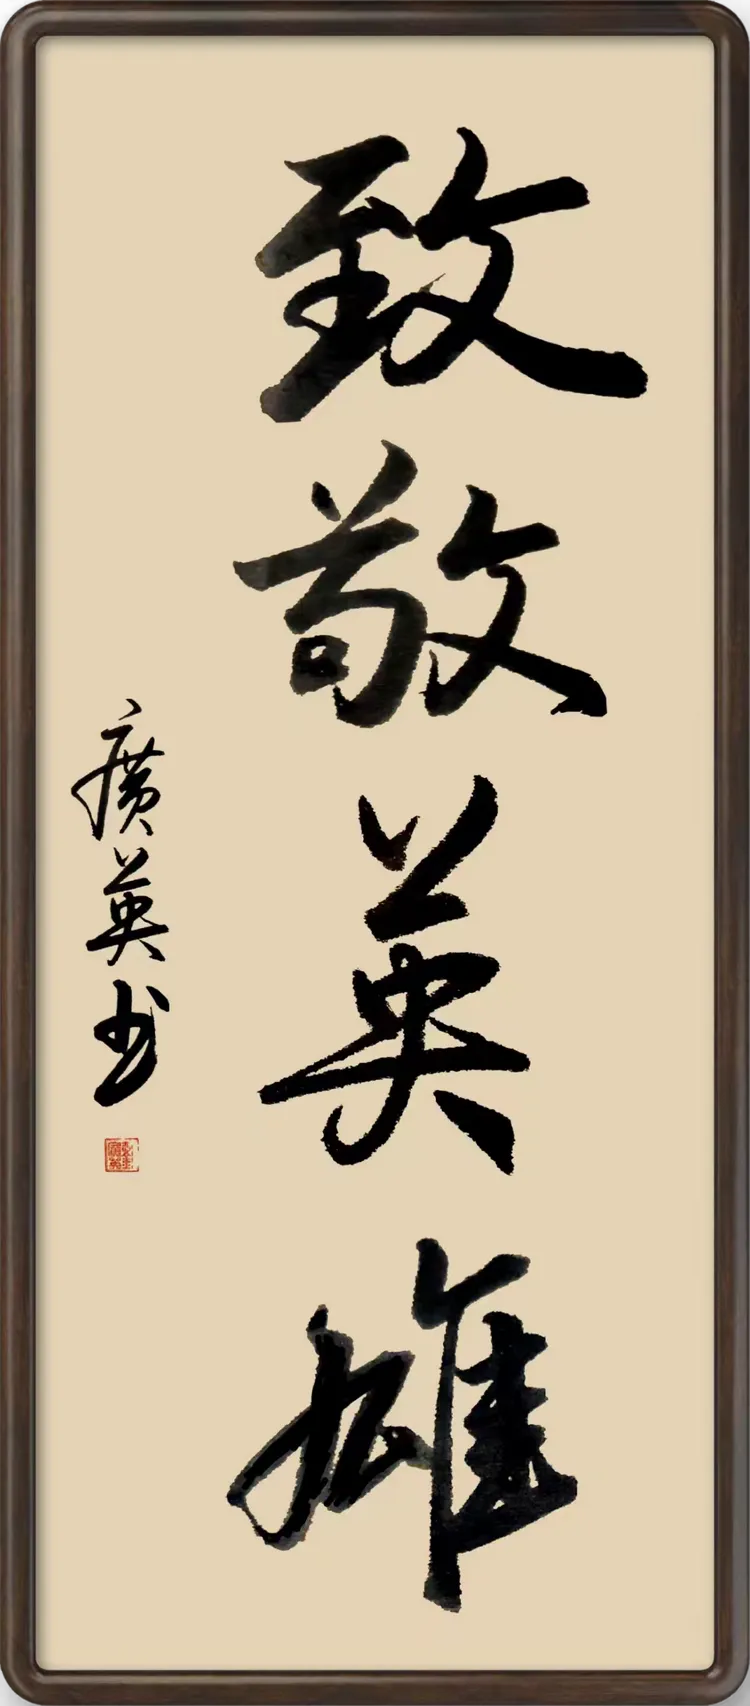 致敬英雄
廣英书